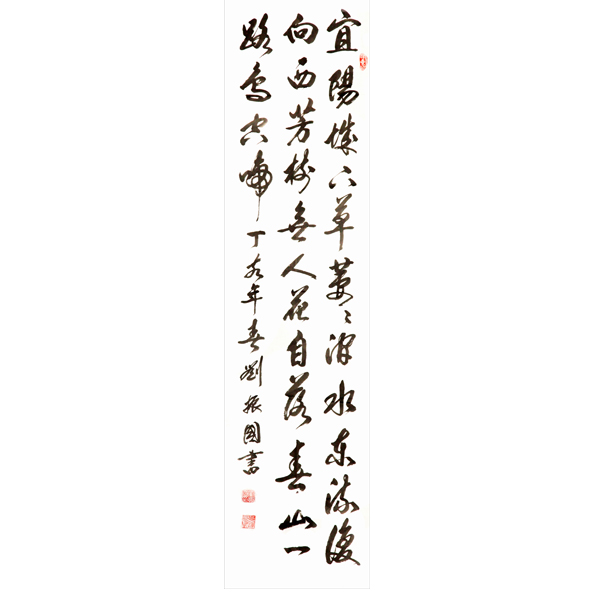 宜陽城下草萋〻澗水東流復
向西芳樹無人花自落春山一
路鳥空啼丁亥年春劉振國書